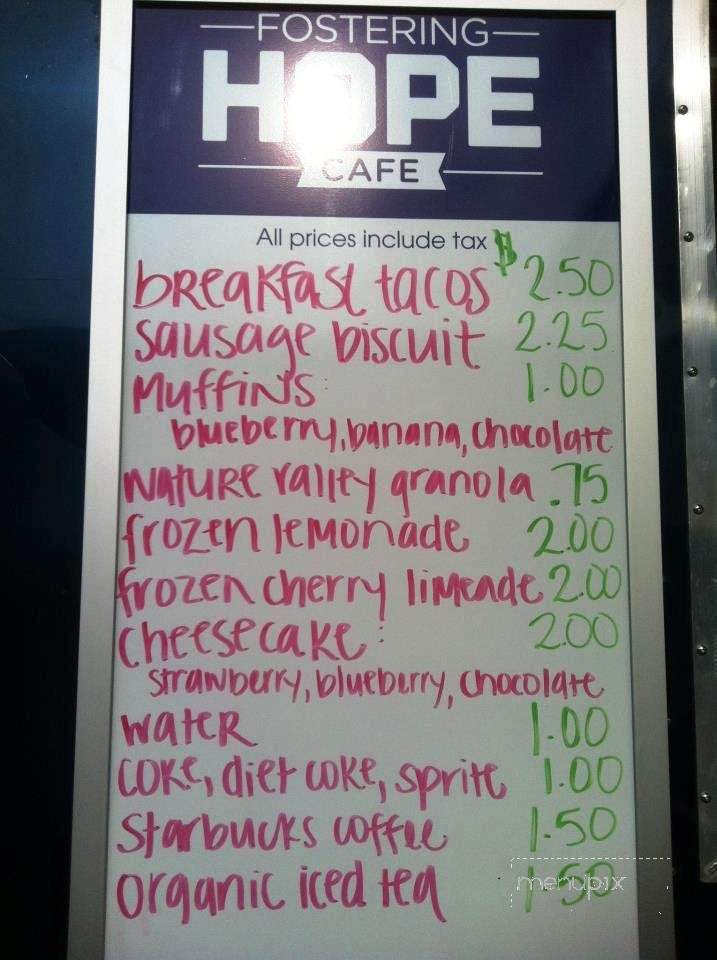 FOSTERING
HOPE
CAFE
All prices include tax
breakfast tacos $2.50
sausage biscuit 2.25
Muffins: 1.00
blueberry, banana, chocolate
Nature valley granola .75
frozen lemonade 2.00
frozen cherry limeade 2.00
cheesecake: 2.00
strawberry, blueberry, chocolate
water 1.00
coke, diet coke, sprite 1.00
Starbucks coffee 1.50
organic iced tea 1.50
menupix